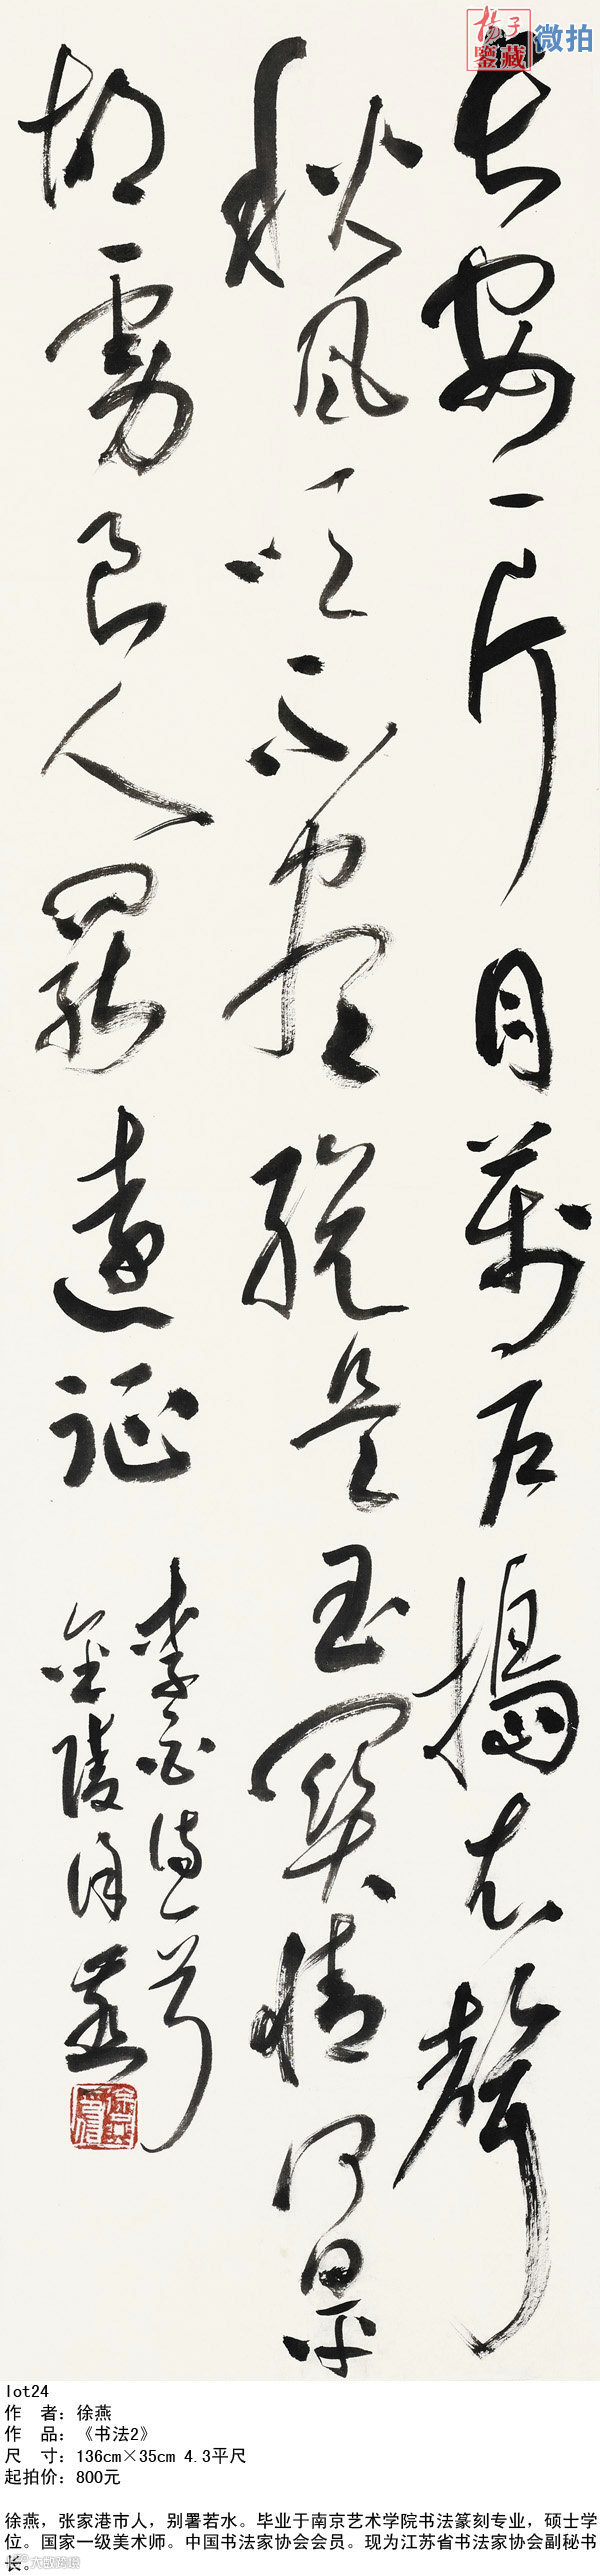 扬子
鑒藏
微拍
長安一片月萬戶搗衣聲
秋風吹不盡總是玉關情何日平
胡虜良人罷遠征
李白詩一首
金陵徐燕
lot24
作 者：徐燕
作 品：《书法2》
尺 寸：136cm×35cm 4.3平尺
起拍价：800元
徐燕，张家港市人，别署若水。毕业于南京艺术学院书法篆刻专业，硕士学
位。国家一级美术师。中国书法家协会会员。现为江苏省书法家协会副秘书
长。